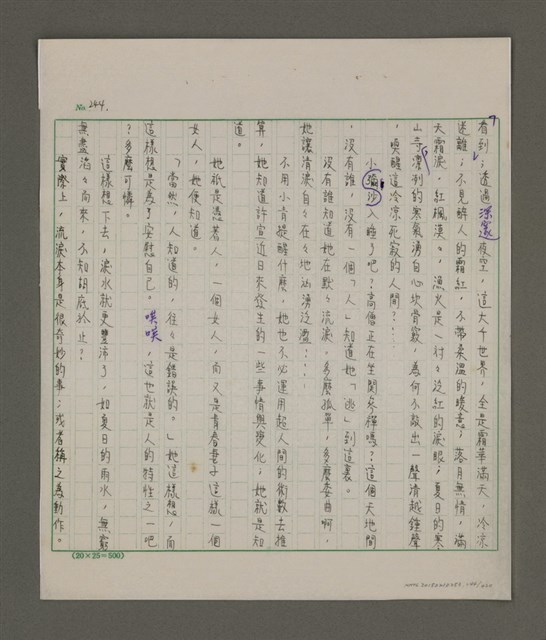 No. 244.
看到；透過深邃夜空，這大千世界，全是霜華滿天，冷凉
迷離；不見醉人的霜紅，不帶柔溫的暖意；落月無情，滿
天霜淚，紅楓漠々，漁火是一付々泛紅的淚眼；夏日的寒
山寺，凜冽的寒氣湧自心坎骨竅，為何不敲出一聲清越鐘聲
，喚醒這冷凉死寂的人間？⋯⋯
小瑜沙入睡了吧？高僧正在坐関參禪嗎？這個天地間
，沒有誰，沒有一個「人」知道她「逃」到這裏。
沒有誰知道她在默々流淚。多麼孤單，多麼委曲啊，
她讓清淚自々在々地汹湧泛濫⋯⋯
不用小青提醒什麼，她也不必運用超人間的術數去推
算，她知道許宣近日來發生的一些事情與變化；她就是知
道。
她祇是憑著人，一個女人，而又是青春妻子這樣一個
女人，她便知道。
「當然，人知道的，往々是錯誤的。」她這樣想，而
這樣想是為了安慰自己。唉唉，這也就是人的特性之一吧
？多麼可憐。
這樣想下去，淚水就更豐沛了，如夏日的雨水，無窮
無盡滔々而來，不知胡底於止？
實際上，流淚本身是很奇妙的事；或者稱之為動作。
(20×25=500)